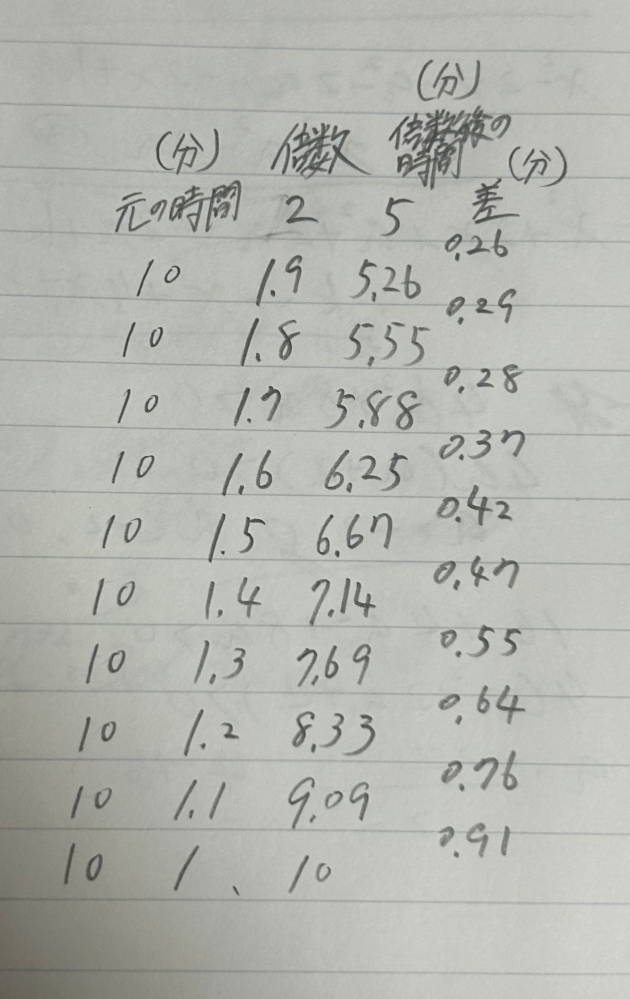 (分)
(分) 倍数 倍数後の
時間 (分)
元の時間 2 5 差
0.26
10 1.9 5.26
0.29
10 1.8 5.55
0.28
10 1.7 5.88
0.37
10 1.6 6.25
0.42
10 1.5 6.67
0.47
10 1.4 7.14
0.55
10 1.3 7.69
0.64
10 1.2 8.33
0.76
10 1.1 9.09
0.91
10 1、 10